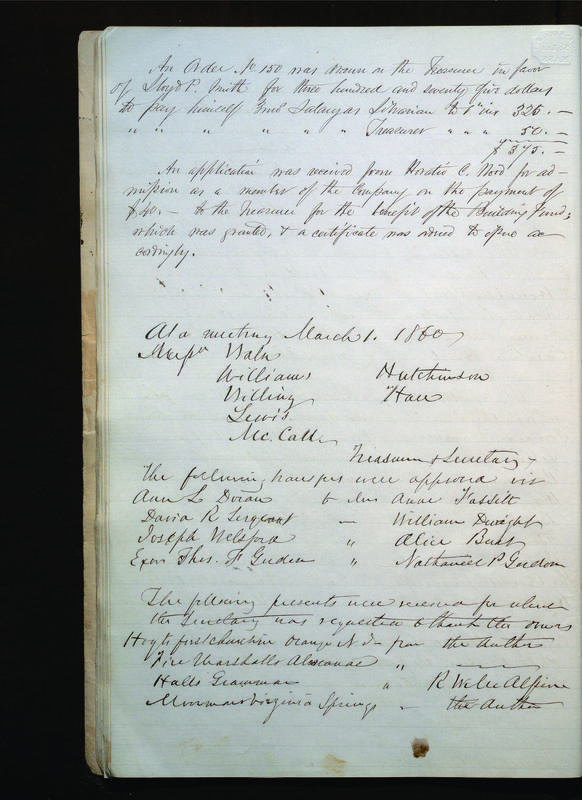 An Order No 150 was drawn on the Treasurer in favor
of Lloyd P. Smith for three hundred and seventy five dollars
to pay himself Salary as Librarian to inst 325. —
" " " " " " Treasurer " " " 50. —
$ 375. —
An application was received from Horatio C. Wood for ad-
mission as a member of the Company on the payment of
$40. — to the Treasurer for the benefit of the Building Fund;
which was granted, & a certificate was ordered to issue ac
cordingly.
At a meeting March 1. 1860
Messrs Waln
Williams Hutchinson
Willing Hare
Lewis
McCall
Treasurer & Secretary
The following transfers were approved viz
Ann L Doran to Mrs Anne Fassitt
David R Sergeant — William Dwight
Joseph Welsford " Alice Burt
Exors Thos. F Gordon " Nathaniel P Gordon
The following presents were received for which
the Secretary was requested to thank the donors
from the Author
Fire Marshalls Almanac " ——
Halls Grammar " R McAlpine
Moormans Virginia Springs — the Author